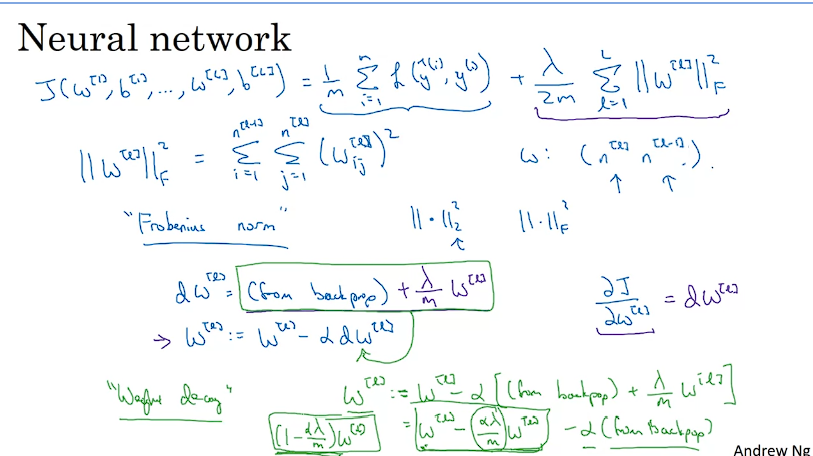 Neural network
J(w^{[1]}, b^{[1]}, ..., w^{[L]}, b^{[L]}) = \frac{1}{m} \sum_{i=1}^{n} L(ŷ^{(i)}, y^{(i)}) + \frac{λ}{2m} \sum_{l=1}^{L} ||w^{[l]}||_F^2
||w^{[l]}||_F^2 = \sum_{i=1}^{n^{[l-1]}} \sum_{j=1}^{n^{[l]}} (w_{ij}^{[l]})^2    w: (n^{[l]} n^{[l-1]}).
"Frobenius norm"    ||·||_2^2    ||·||_F^2
dw^{[l]} = (from backprop) + \frac{λ}{m} w^{[l]}    \frac{∂J}{∂w^{[l]}} = dw^{[l]}
→ w^{[l]} := w^{[l]} - α dw^{[l]}
"Weight decay"    w^{[l]} := w^{[l]} - α [(from backprop) + \frac{λ}{m} w^{[l]}]
(1 - \frac{αλ}{m}) w^{[l]} = w^{[l]} - \frac{αλ}{m} w^{[l]} - α (from backprop)
Andrew Ng